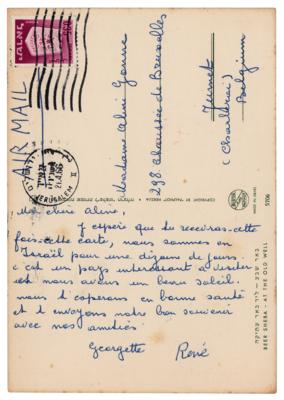 AIR MAIL
Madame Aline
298 chaussée de Bruxelles
Jumet
(Charleroi)
Belgium
JERUSALEM
My chère Aline,
J'espère que tu recevras cette
fois cette carte, nous sommes en
Israël pour une dizaine de jours.
c'est un pays intéressant à visiter
et nous avons un beau soleil.
nous t'espérons en bonne santé
et t'envoyons notre bon souvenir
avec nos amitiés
Georgette René
BEER SHEBA - AT THE OLD WELL